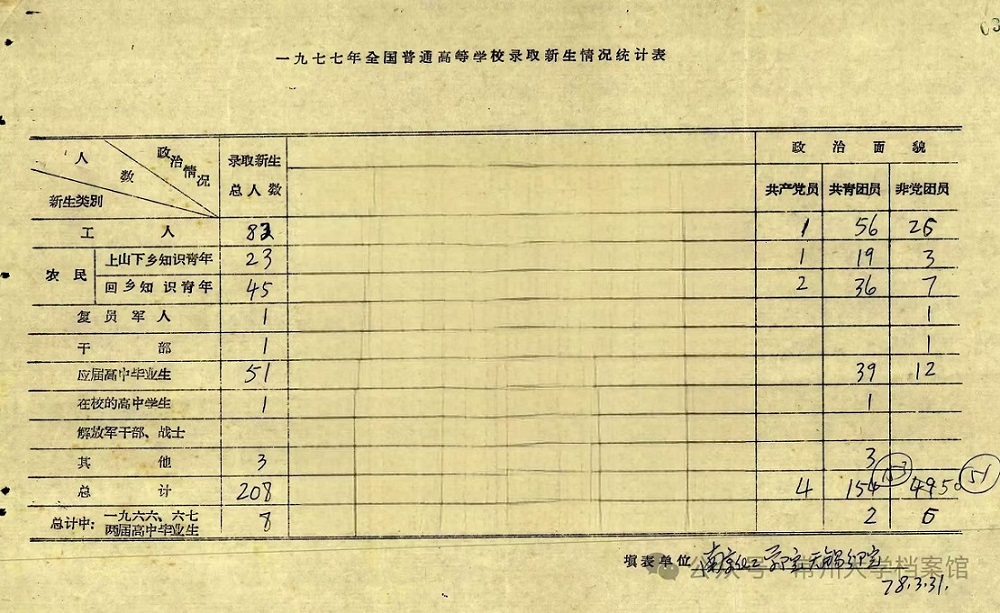 一九七七年全国普通高等学校录取新生情况统计表
人数 政治情况 新生类别 录取新生总人数 政治面貌
共产党员 共青团员 非党团员
工人 83 1 56 26
农民 上山下乡知识青年 23 1 19 3
回乡知识青年 45 2 36 7
复员军人 1 1
干部 1 1
应届高中毕业生 51 39 12
在校的高中学生 1 1
解放军干部、战士
其他 3 3
总计 208 4 154 153 51
总计中：一九六六、六七两届高中毕业生 8 2 6
填表单位 南京化工学院无锡分院
78.3.31.
公众号·常州大学档案馆